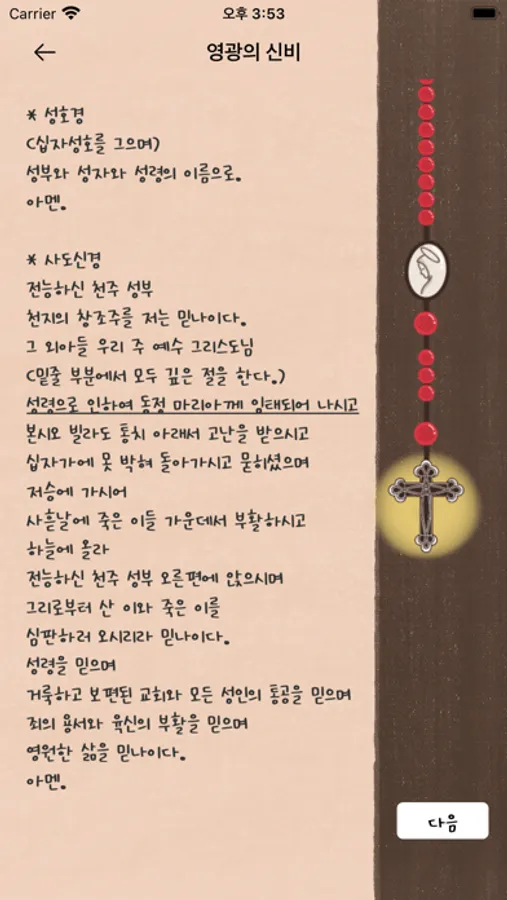 Carrier 오후 3:53
영광의 신비
* 성호경
(십자성호를 그으며)
성부와 성자와 성령의 이름으로.
아멘.
* 사도신경
전능하신 천주 성부
천지의 창조주를 저는 믿나이다.
그 외아들 우리 주 예수 그리스도님
(밑줄 부분에서 모두 깊은 절을 한다.)
성령으로 인하여 동정 마리아께 잉태되어 나시고
본시오 빌라도 통치 아래서 고난을 받으시고
십자가에 못 박혀 돌아가시고 묻히셨으며
저승에 가시어
사흗날에 죽은 이들 가운데서 부활하시고
하늘에 올라
전능하신 천주 성부 오른편에 앉으시며
그리로부터 산 이와 죽은 이를
심판하러 오시리라 믿나이다.
성령을 믿으며
거룩하고 보편된 교회와 모든 성인의 통공을 믿으며
죄의 용서와 육신의 부활을 믿으며
영원한 삶을 믿나이다.
아멘.
다음